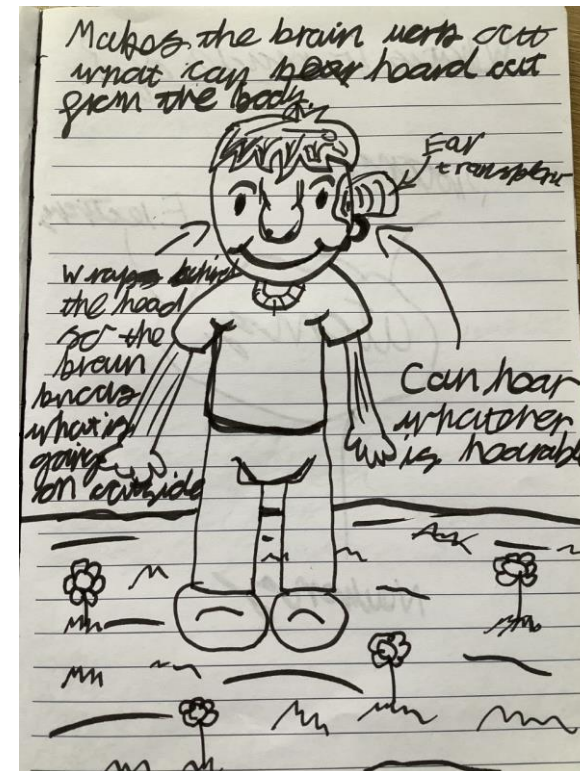 Makes the brain work out
what can hear heard out
from the body.
Ear
transplant
Wraps behind
the head
so the
brain
knows
what is
going
on outside
Can hear
whatever
is hearable